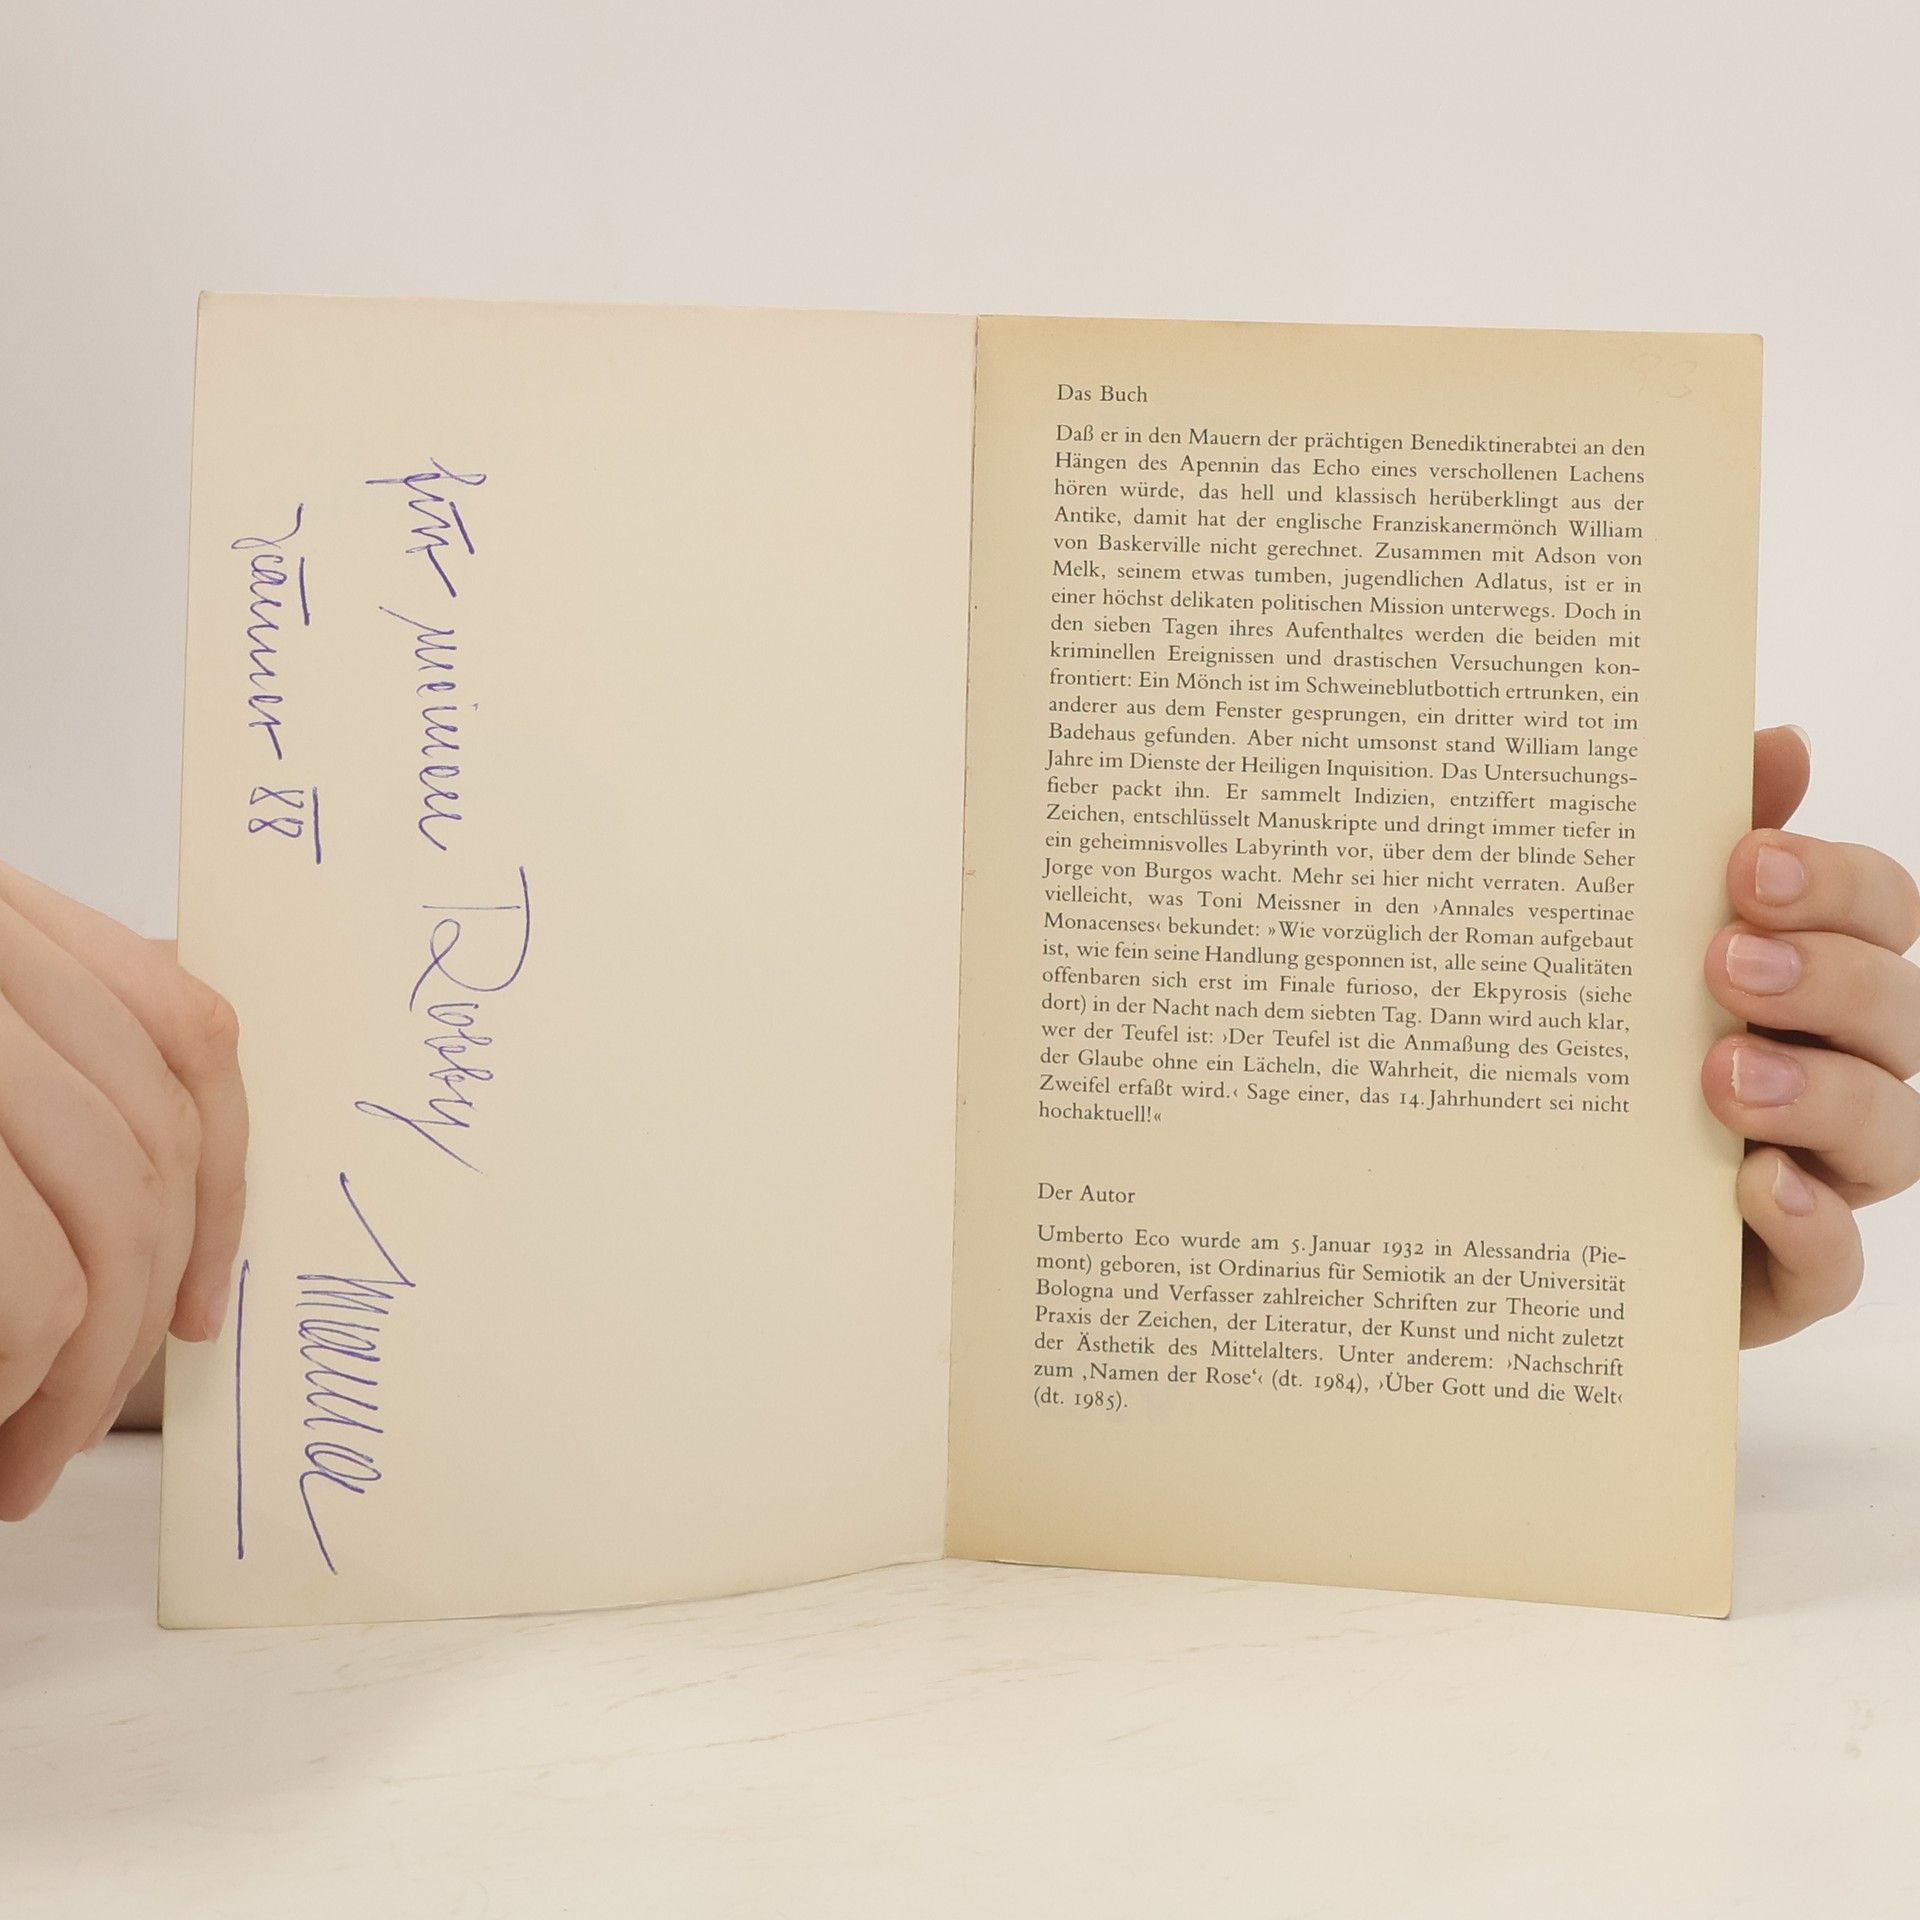 für meinen Robby
Jänner 88
Mama
Das Buch
Daß er in den Mauern der prächtigen Benediktinerabtei an den
Hängen des Apennin das Echo eines verschollenen Lachens
hören würde, das hell und klassisch herüberklingt aus der
Antike, damit hat der englische Franziskanermönch William
von Baskerville nicht gerechnet. Zusammen mit Adson von
Melk, seinem etwas tumben, jugendlichen Adlatus, ist er in
einer höchst delikaten politischen Mission unterwegs. Doch in
den sieben Tagen ihres Aufenthaltes werden die beiden mit
kriminellen Ereignissen und drastischen Versuchungen kon-
frontiert: Ein Mönch ist im Schweineblutbottich ertrunken, ein
anderer aus dem Fenster gesprungen, ein dritter wird tot im
Badehaus gefunden. Aber nicht umsonst stand William lange
Jahre im Dienste der Heiligen Inquisition. Das Untersuchungs-
fieber packt ihn. Er sammelt Indizien, entziffert magische
Zeichen, entschlüsselt Manuskripte und dringt immer tiefer in
ein geheimnisvolles Labyrinth vor, über dem der blinde Seher
Jorge von Burgos wacht. Mehr sei hier nicht verraten. Außer
vielleicht, was Toni Meissner in den ›Annales vespertinae
Monacenses‹ bekundet: »Wie vorzüglich der Roman aufgebaut
ist, wie fein seine Handlung gesponnen ist, alle seine Qualitäten
offenbaren sich erst im Finale furioso, der Ekpyrosis (siehe
dort) in der Nacht nach dem siebten Tag. Dann wird auch klar,
wer der Teufel ist: ›Der Teufel ist die Anmaßung des Geistes,
der Glaube ohne ein Lächeln, die Wahrheit, die niemals vom
Zweifel erfaßt wird.‹ Sage einer, das 14. Jahrhundert sei nicht
hochaktuell!«
Der Autor
Umberto Eco wurde am 5. Januar 1932 in Alessandria (Pie-
mont) geboren, ist Ordinarius für Semiotik an der Universität
Bologna und Verfasser zahlreicher Schriften zur Theorie und
Praxis der Zeichen, der Literatur, der Kunst und nicht zuletzt
der Ästhetik des Mittelalters. Unter anderem: ›Nachschrift
zum ‚Namen der Rose‘‹ (dt. 1984), ›Über Gott und die Welt‹
(dt. 1985).